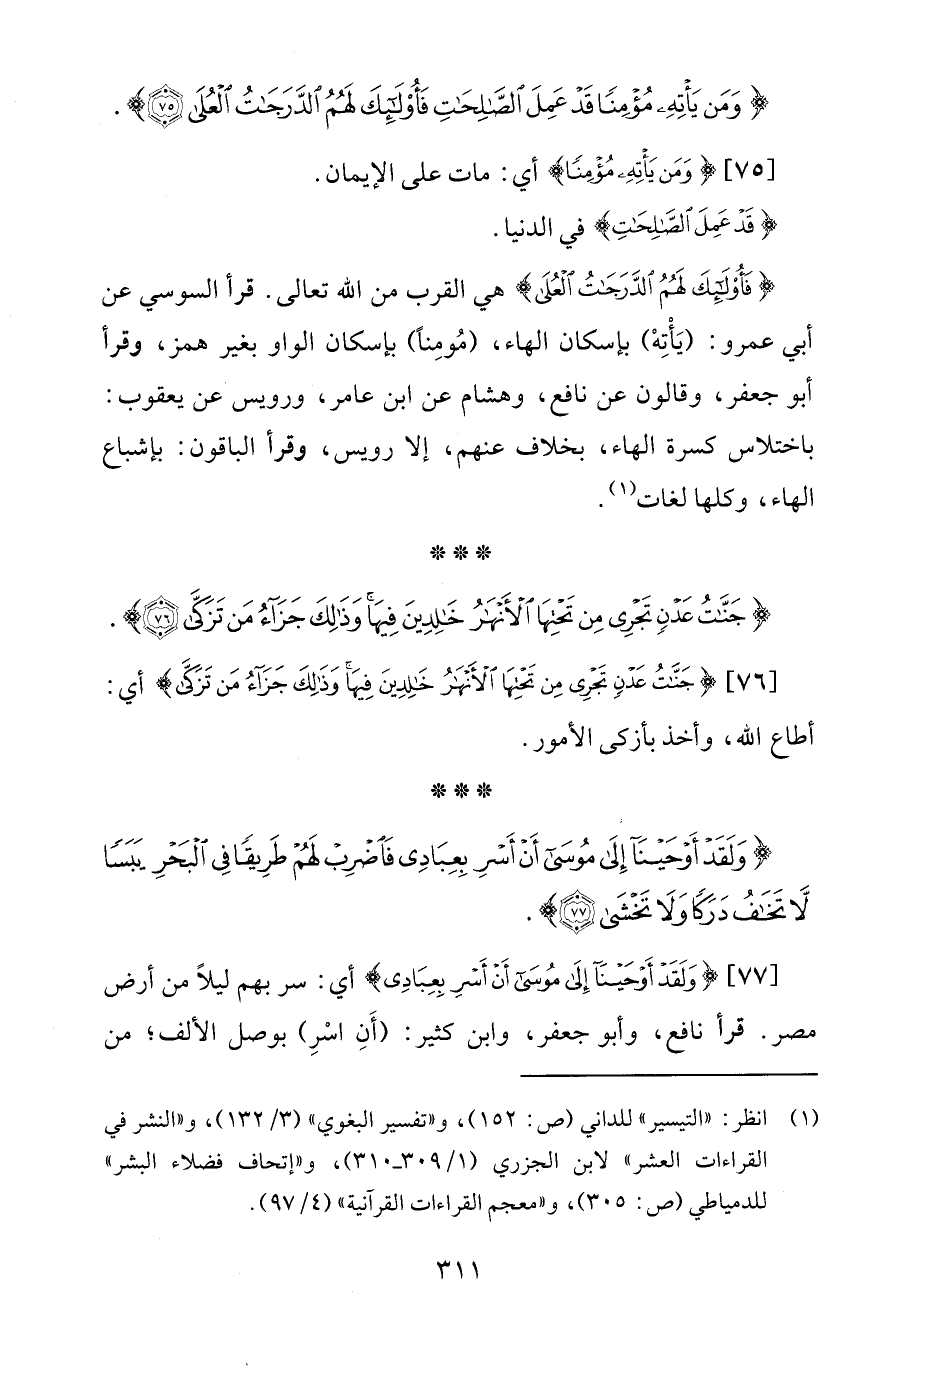 ﴿ وَمَن يَأْتِهِۦ مُؤْمِنًا قَدْ عَمِلَ ٱلصَّٰلِحَٰتِ فَأُو۟لَٰٓئِكَ لَهُمُ ٱلدَّرَجَٰتُ ٱلْعُلَىٰ ٧٥ ﴾ .
[٧٥] ﴿ وَمَن يَأْتِهِۦ مُؤْمِنًا﴾ أي: مات على الإيمان.
﴿ قَدْ عَمِلَ ٱلصَّٰلِحَٰتِ﴾ في الدنيا.
﴿ فَأُو۟لَٰٓئِكَ لَهُمُ ٱلدَّرَجَٰتُ ٱلْعُلَىٰ﴾ هي القرب من الله تعالى. قرأ السوسي عن
أبي عمرو: (يَأْتِهْ) بإسكان الهاء، (مُومِناً) بإسكان الواو بغير همز، وقرأ
أبو جعفر، وقالون عن نافع، وهشام عن ابن عامر، ورويس عن يعقوب:
باختلاس كسرة الهاء، بخلاف عنهم، إلا رويس، وقرأ الباقون: بإشباع
الهاء، وكلها لغات(١).
* * *
﴿ جَنَّٰتُ عَدْنٍ تَجْرِى مِن تَحْتِهَا ٱلْأَنْهَٰرُ خَٰلِدِينَ فِيهَا ۚ وَذَٰلِكَ جَزَآءُ مَن تَزَكَّىٰ ٧٦ ﴾ .
[٧٦] ﴿ جَنَّٰتُ عَدْنٍ تَجْرِى مِن تَحْتِهَا ٱلْأَنْهَٰرُ خَٰلِدِينَ فِيهَا ۚ وَذَٰلِكَ جَزَآءُ مَن تَزَكَّىٰ﴾ أي:
أطاع الله، وأخذ بأزكى الأمور.
* * *
﴿ وَلَقَدْ أَوْحَيْنَآ إِلَىٰ مُوسَىٰٓ أَنْ أَسْرِ بِعِبَادِى فَٱضْرِبْ لَهُمْ طَرِيقًا فِى ٱلْبَحْرِ يَبَسًا
لَّا تَخَٰفُ دَرَكًا وَلَا تَخْشَىٰ ٧٧ ﴾ .
[٧٧] ﴿ وَلَقَدْ أَوْحَيْنَآ إِلَىٰ مُوسَىٰٓ أَنْ أَسْرِ بِعِبَادِى﴾ أي: سر بهم ليلاً من أرض
مصر. قرأ نافع، وأبو جعفر، وابن كثير: (أَنِ اسْرِ) بوصل الألف؛ من
(١) انظر: «التيسير» للداني (ص: ١٥٢)، و«تفسير البغوي» (٣/ ١٣٢)، و«النشر في
القراءات العشر» لابن الجزري (١/ ٣٠٩-٣١٠)، و«إتحاف فضلاء البشر»
للدمياطي (ص: ٣٠٥)، و«معجم القراءات القرآنية» (٤/ ٩٧).
٣١١